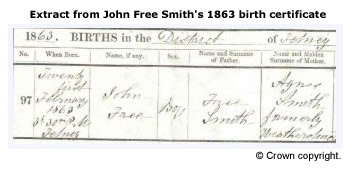 Extract from John Free Smith's 1863 birth certificate
1863. BIRTHS in the District of Fotney
No. When Born. Name, if any. Sex. Name and Surname of Father. Name and Maiden Surname of Mother.
97
Twenty
first
February
1863
John
Free
Boy
Free
Smith
Agnes
Smith
formerly
© Crown copyright.